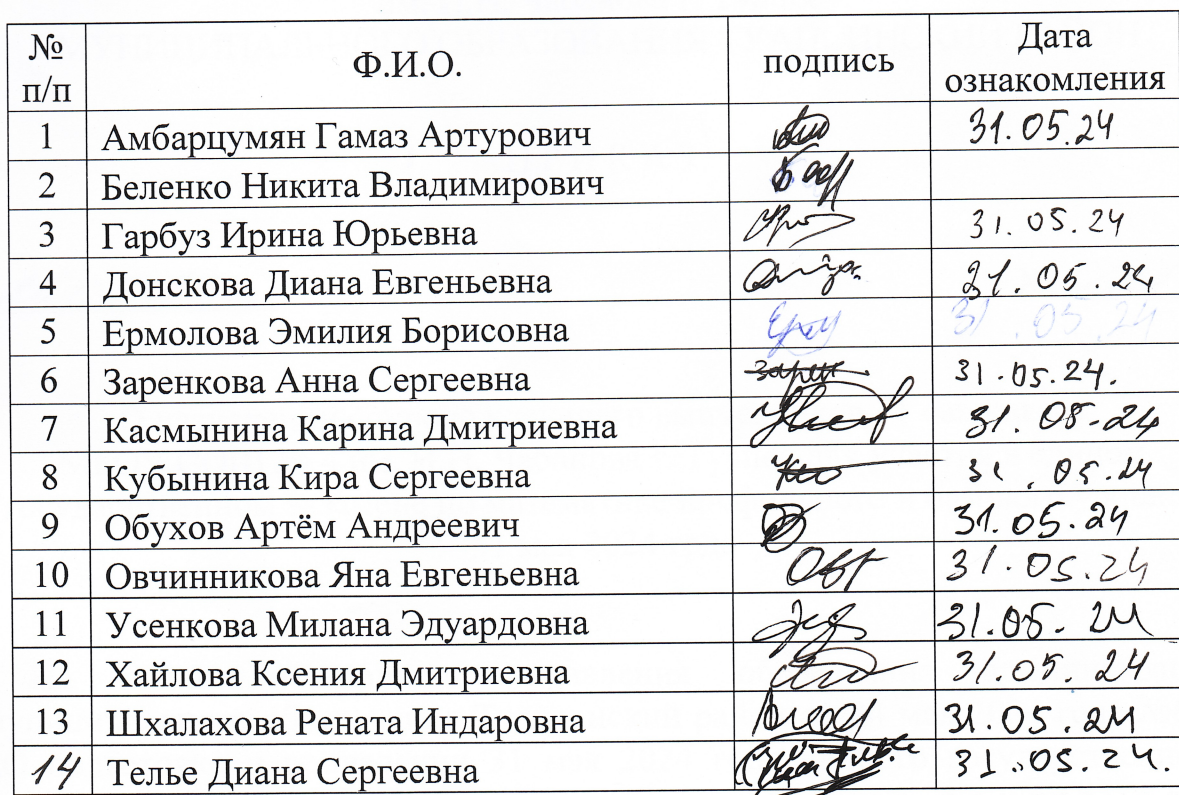 № п/п Ф.И.О. подпись Дата ознакомления
1 Амбарцумян Гамаз Артурович 31.05.24
2 Беленко Никита Владимирович
3 Гарбуз Ирина Юрьевна 31.05.24
4 Донскова Диана Евгеньевна 31.05.24
5 Ермолова Эмилия Борисовна 31.05.24
6 Заренкова Анна Сергеевна 31.05.24.
7 Касмынина Карина Дмитриевна 31.05.24
8 Кубынина Кира Сергеевна 31.05.24
9 Обухов Артём Андреевич 31.05.24
10 Овчинникова Яна Евгеньевна 31.05.24
11 Усенкова Милана Эдуардовна 31.05.24
12 Хайлова Ксения Дмитриевна 31.05.24
13 Шхалахова Рената Индаровна 31.05.24
14 Телье Диана Сергеевна 31.05.24.